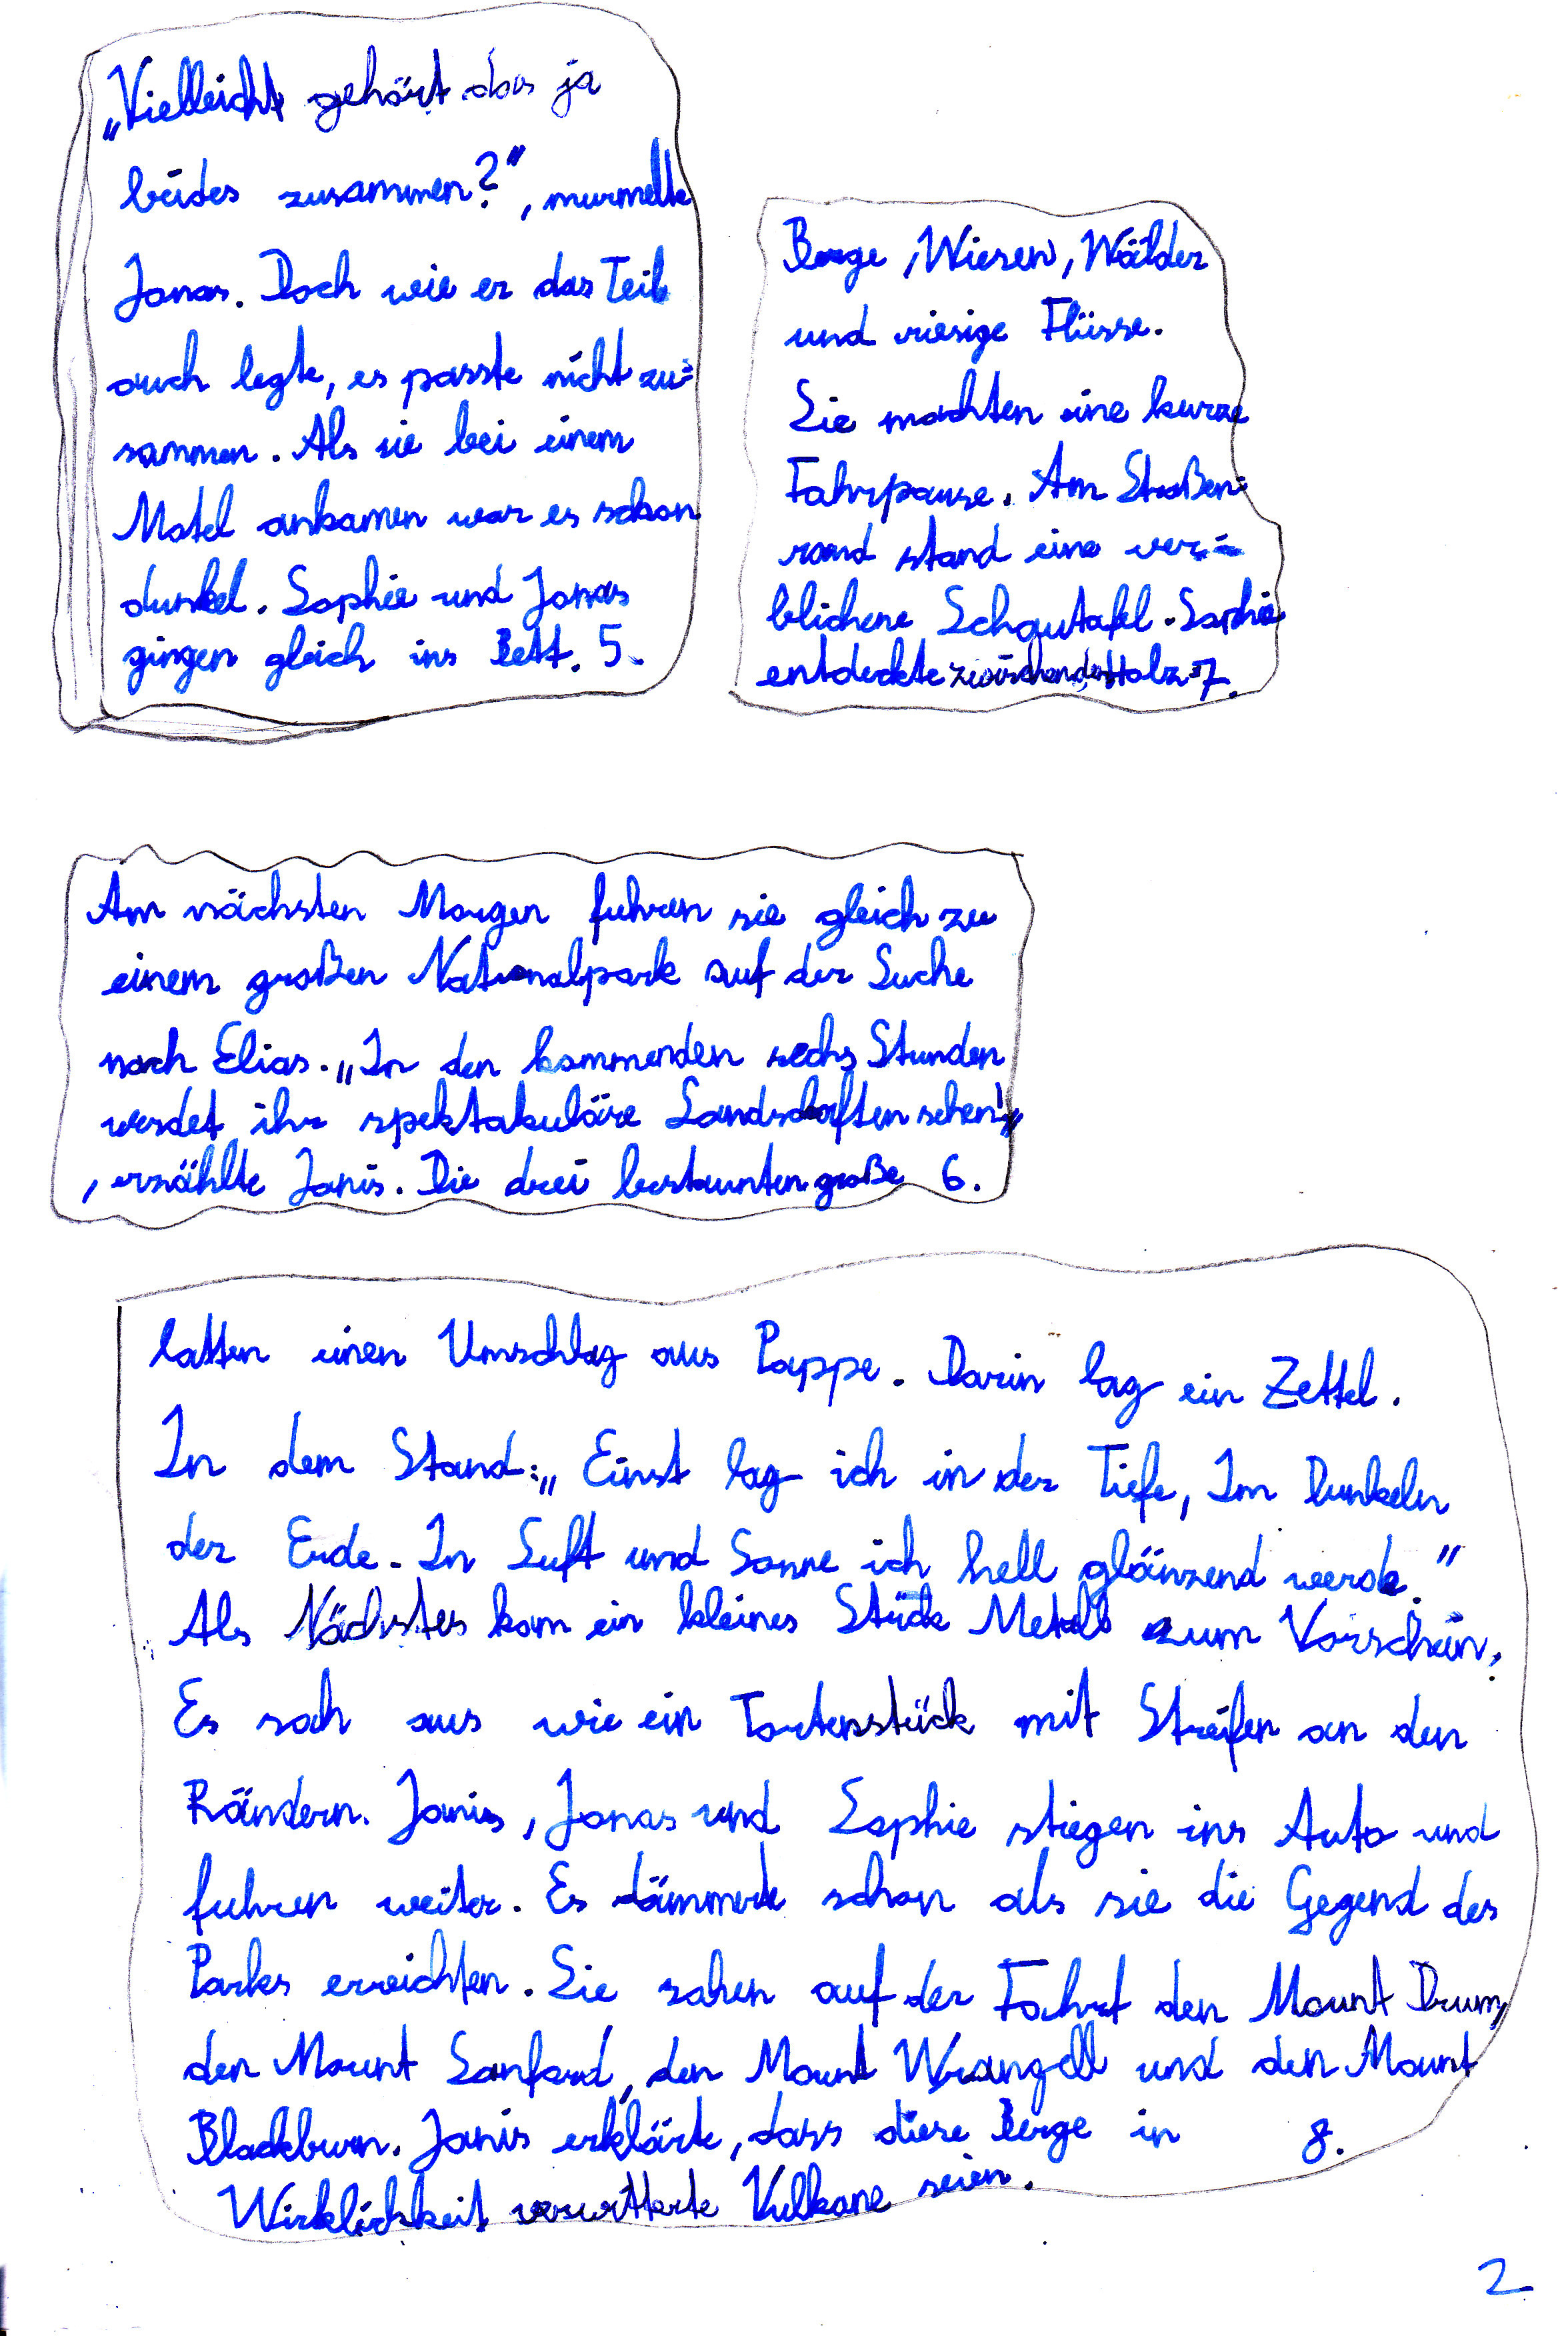 „Vielleicht gehört das ja
beides zusammen?", murmelte
Jonas. Doch wie er das Teil
auch legte, es passte nicht zu=
sammen. Als sie bei einem
Motel ankamen war es schon
dunkel. Sophie und Jonas
gingen gleich ins Bett. 5.
Am nächsten Morgen fuhren sie gleich zu
einem großen Nationalpark auf der Suche
nach Elias. „In den kommenden sechs Stunden
werdet ihr spektakuläre Landschaften sehen!„
, erzählte Janis. Die drei bestaunten große 6.
Berge, Wiesen, Wälder
und riesige Flüsse.
Sie machten eine kurze
Fahrpause. Am Straßen=
rand stand eine ver=
blichene Schautafel. Sophie
entdeckte zwischen den Holz= 7.
latten einen Umschlag aus Pappe. Darin lag ein Zettel.
In dem Stand: „Einst lag ich in der Tiefe, Im Dunkeln
der Erde. In Luft und Sonne ich hell glänzend werde."
Als Nächstes kam ein kleines Stück Metall zum Vorschein.
Es sah aus wie ein Tortenstück mit Streifen an den
Rändern. Janis, Jonas und Sophie stiegen ins Auto und
fuhren weiter. Es dämmerte schon als sie die Gegend des
Parks erreichten. Sie sahen auf der Fahrt den Mount Drum,
den Mount Sanford, den Mount Wrangell und den Mount
Blackburn. Janis erklärte, dass diese Berge in 8.
Wirklichkeit verwitterte Vulkane seien.
2